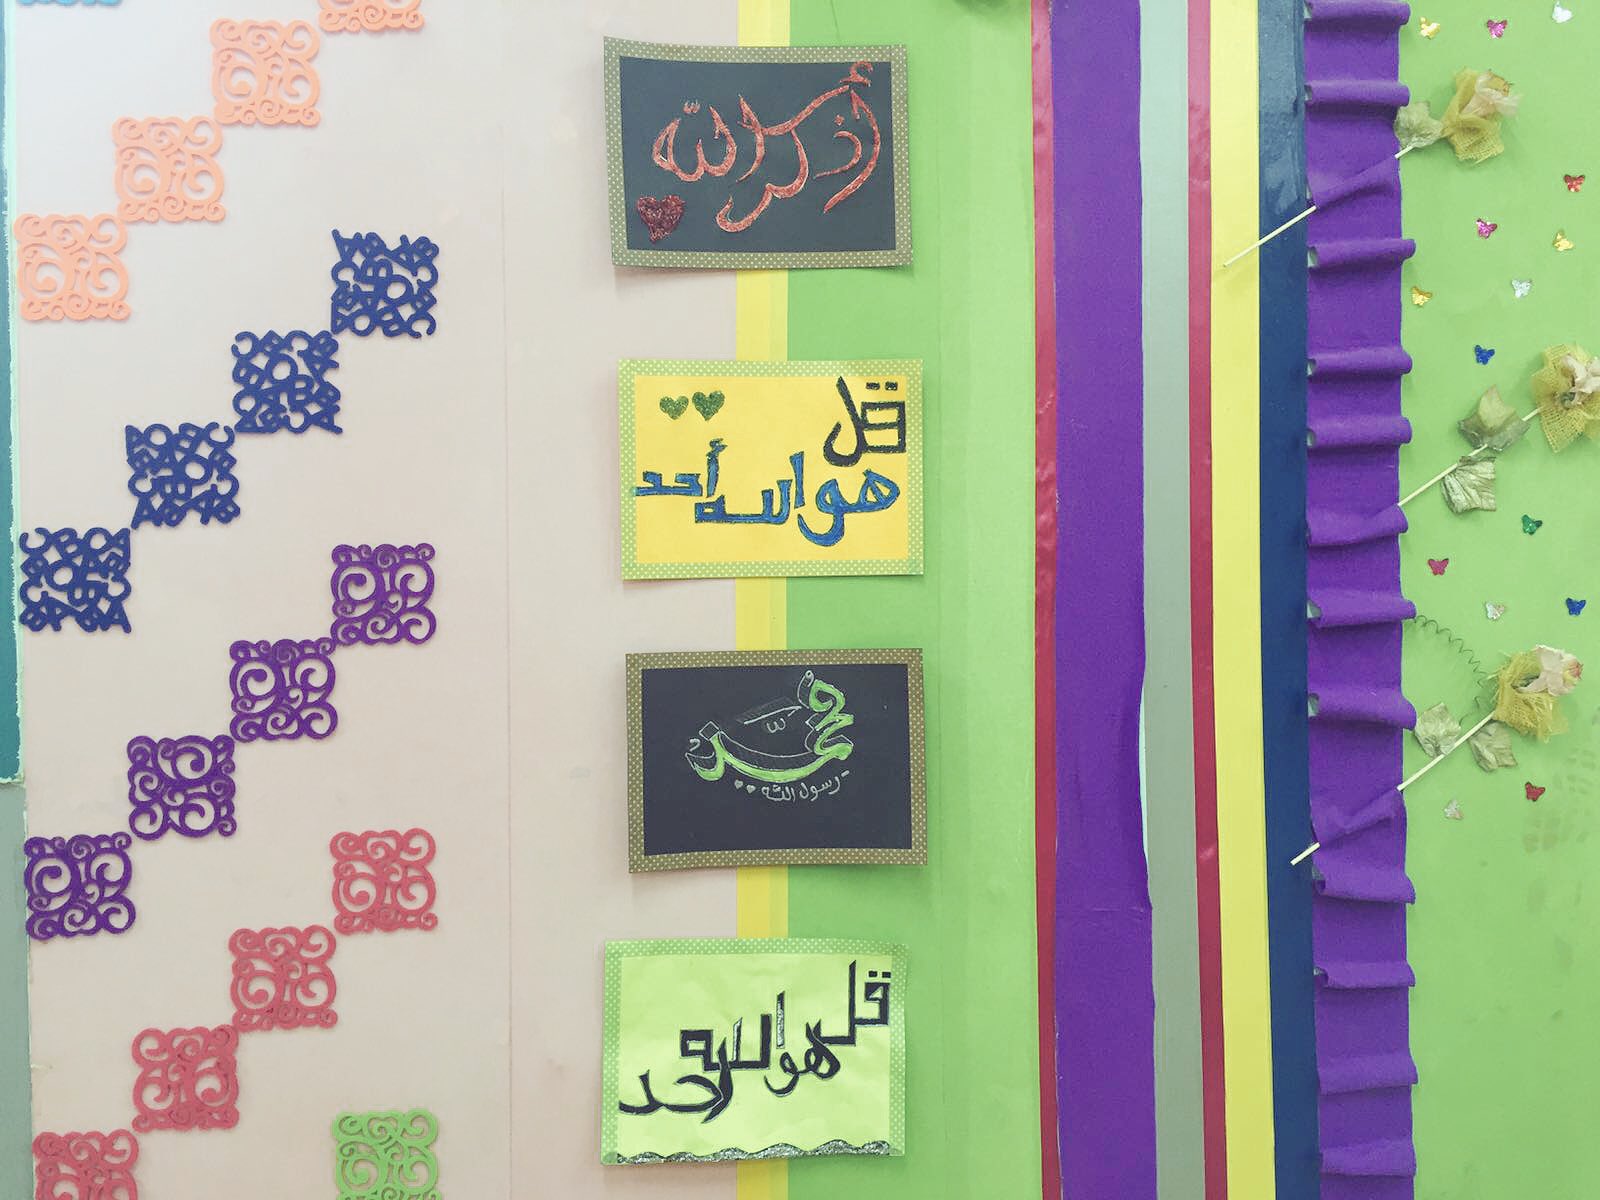 أذكر الله
قل
هو الله أحد
محمد
رسول الله
قل هو الله أحد